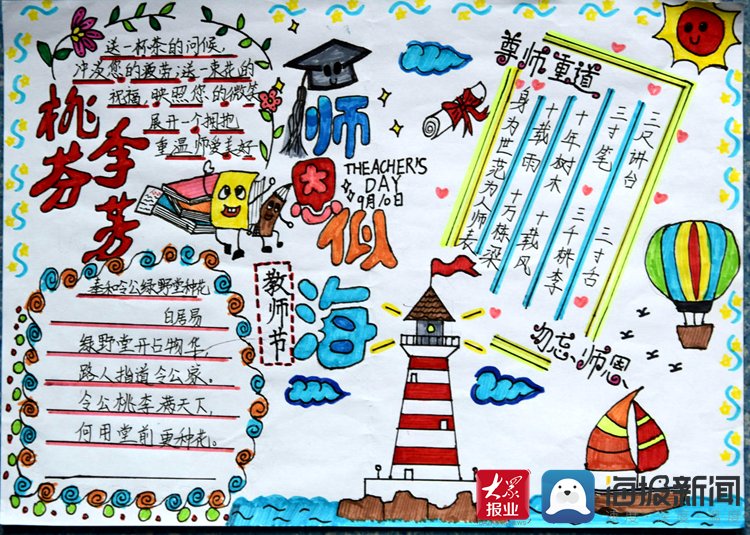 送一杯茶的问候,
冲淡您的疲劳;送一束花的
祝福,映照您的微笑
展开一个拥抱,
重温师爱美好
桃李
芬芳
师恩似海
THEACHER'S
DAY
9月10日
教师节
奉和令公绿野堂种花
白居易
绿野堂开占物华,
路人指道令公家。
令公桃李满天下,
何用堂前更种花。
尊师重道
三尺讲台 三寸舌
三寸笔 三千桃李
十年树木 十载风
十载雨 十万栋梁
身为世范为人师表
勿忘师恩
大众
报业
海报新闻